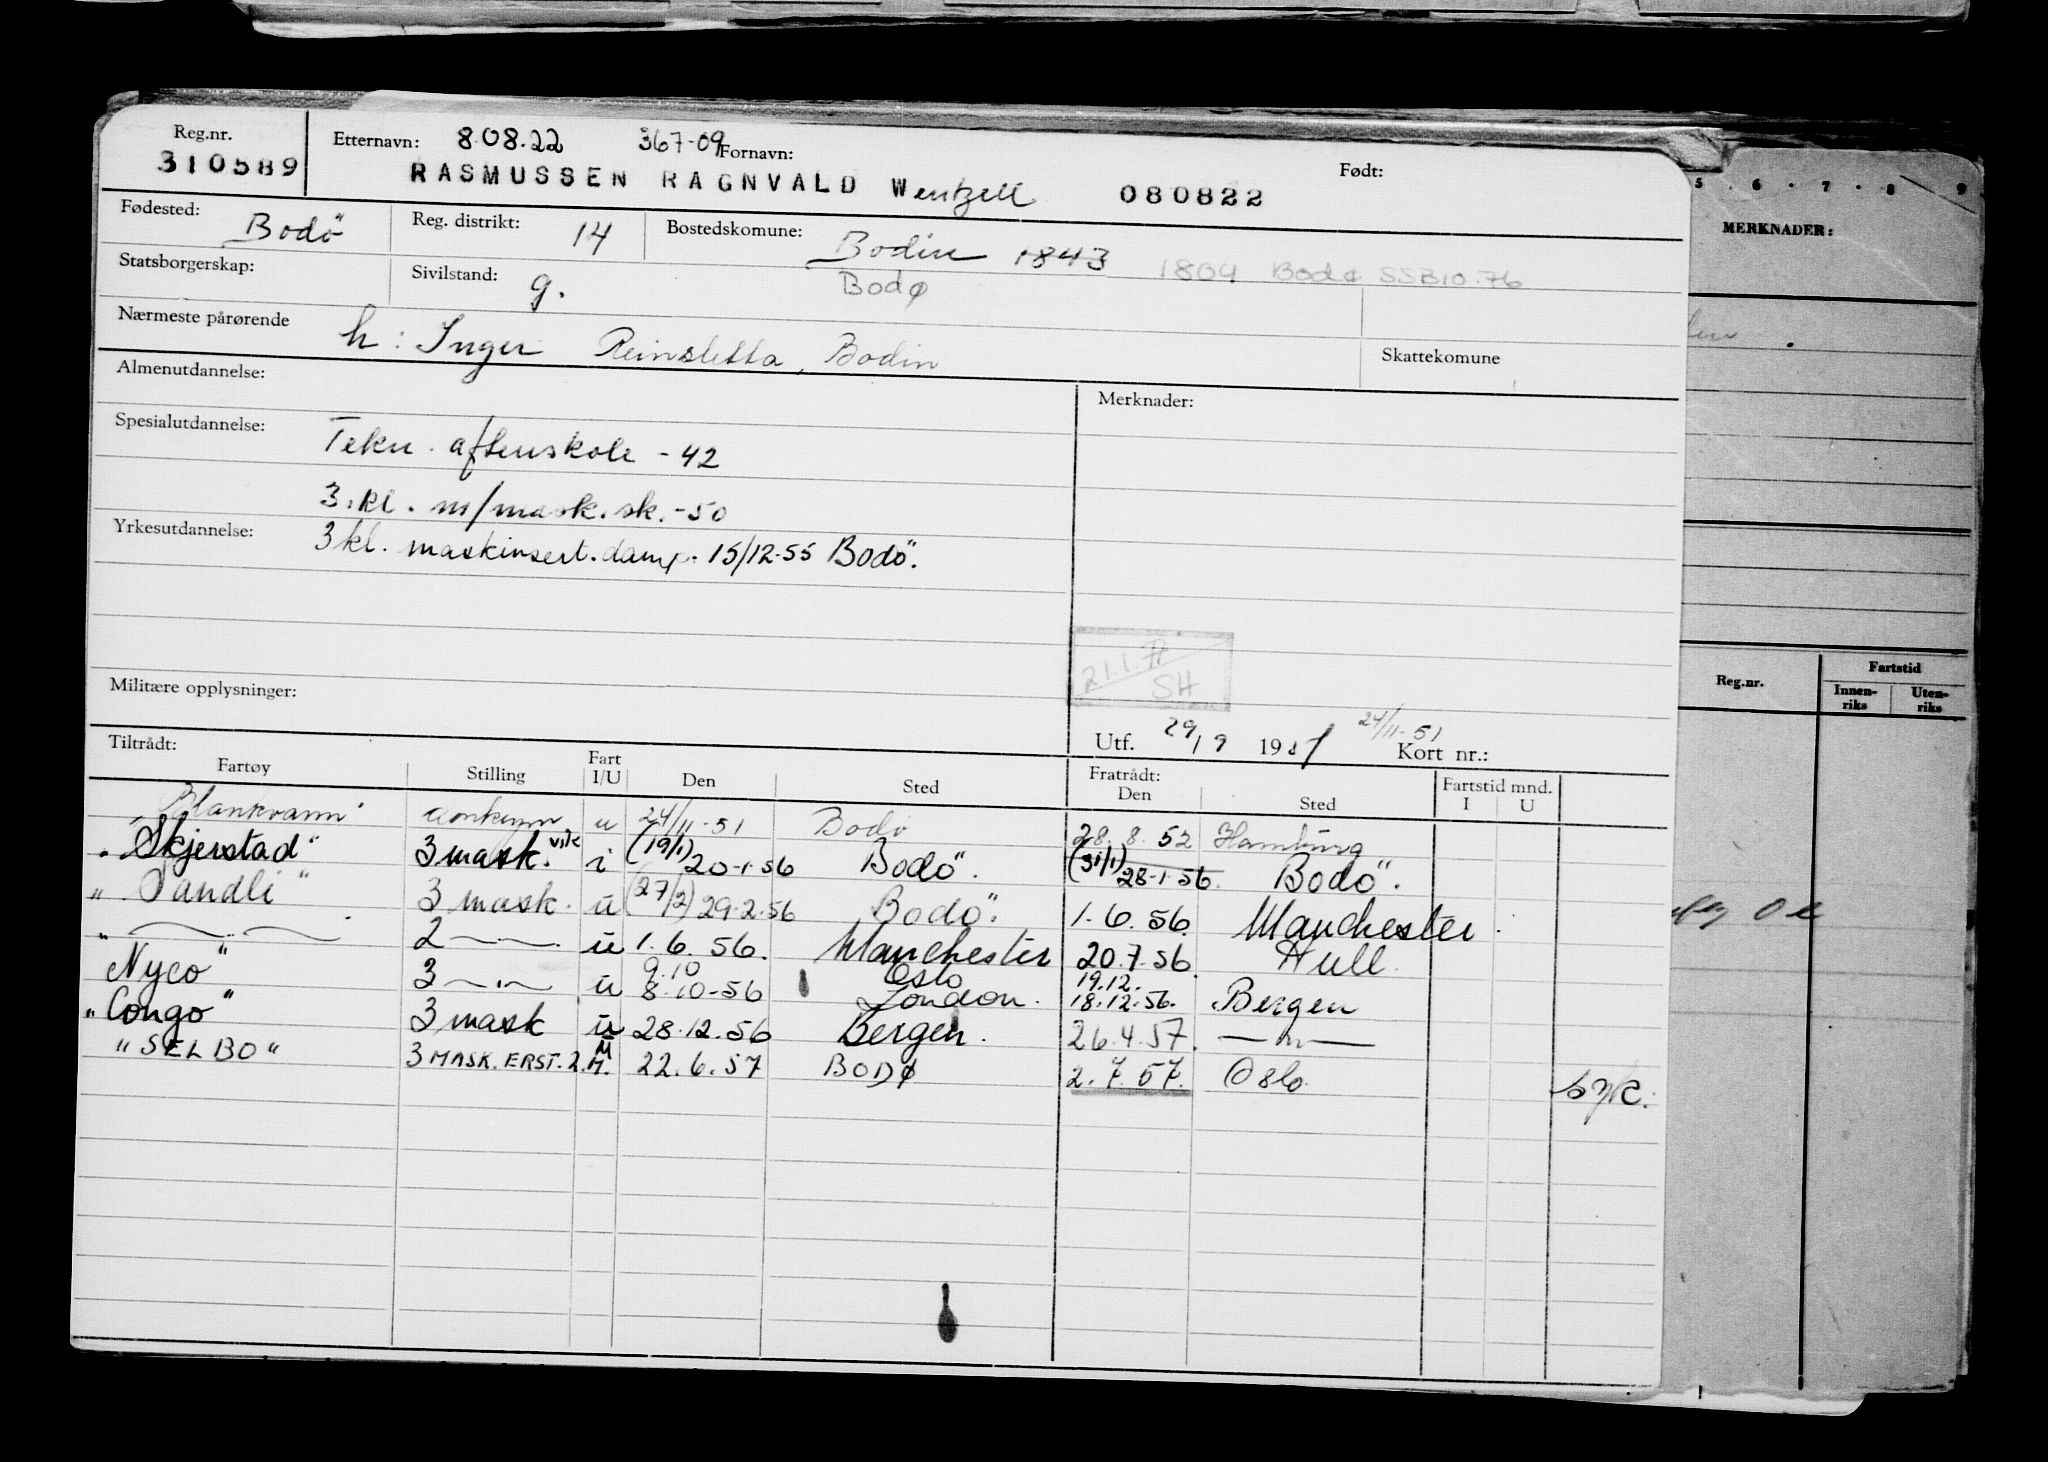 Reg.nr. Etternavn: 8.08.22 367-09 Fornavn: Født:
310589 RASMUSSEN RAGNVALD Wentzell 080822
Fødested: Bodö Reg. distrikt: 14 Bostedskomune: Bodin 1843 1804 Bodø SSB10.76
Statsborgerskap: Sivilstand: g. Bodø
Nærmeste pårørende h: Inger Reinsletta, Bodin Skattekomune
Almenutdannelse: Merknader:
Spesialutdannelse: Tekn. aftenskole - 42
3.kl. m/mask.sk.-50
Yrkesutdannelse: 3 kl. maskinsert.damp. 15/12-55 Bodö.
21.1.77
SH
Militære opplysninger:
Utf. 29/9 1951 24/11-51 Kort nr.:
Tiltrådt: Fratrådt:
Fartøy Stilling Fart I/U Den Sted Den Sted Fartstid mnd. I U
"Blankvann" u 24/11-51 Bodö 28.8.52 Hamburg
"Skjerstad" 3 mask. vik i (19/1) 20-1-56 Bodö. (31/1) 28-1-56. Bodö.
" " 3 mask. u (27/2) 29-2-56 Bodö. 1.6.56. Manchester.
" —"— 2 —"— u 1.6.56. Manchester 20.7.56. Hull.
"Nyco" 3 —"— u 9.10 8.10-56 Oslo London. 19.12. 18.12.56. Bergen
"Congo" 3 mask u 28.12.56 Bergen. 26.4.57. —"—
"SELBO" 3 MASK. ERST. 2. M. 22.6.57 BODØ 2.7.57. Oslo. syk.
5 · 6 · 7 · 8 · 9
MERKNADER:
Reg.nr. Fartstid
Innen-riks Uten-riks